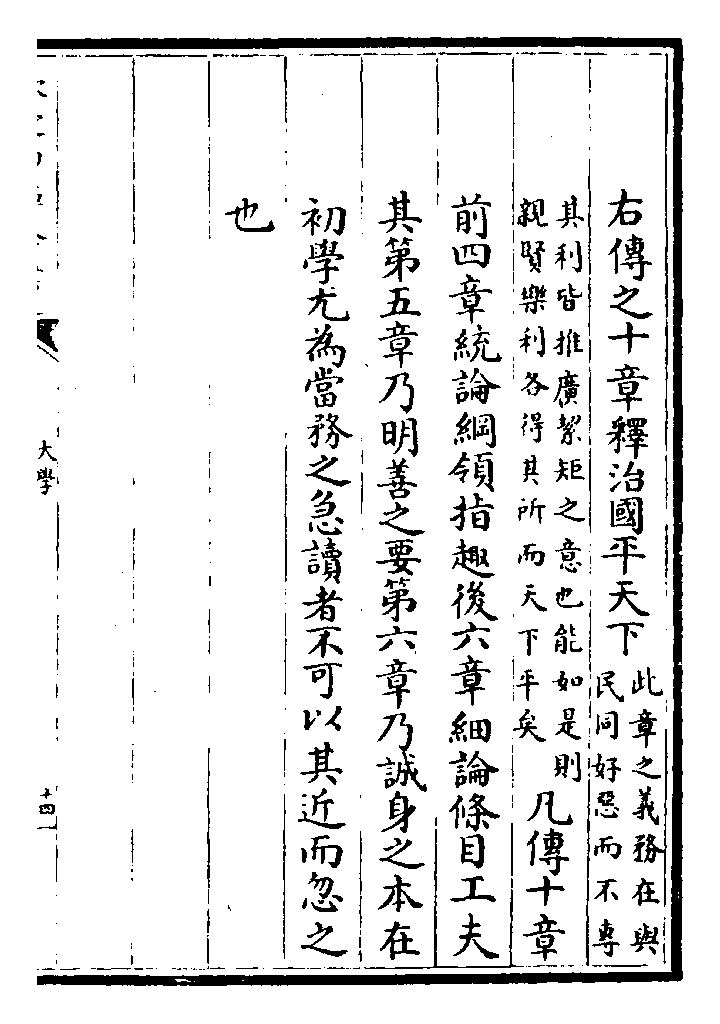 右傳之十章釋治國平天下
此章之義務在與
民同好惡而不專
其利皆推廣絜矩之意也能如是則
親賢樂利各得其所而天下平矣
凡傳十章
前四章統論綱領指趣後六章細論條目工夫
其第五章乃明善之要第六章乃誠身之本在
初學尤為當務之急讀者不可以其近而忽之
也
大學
十四